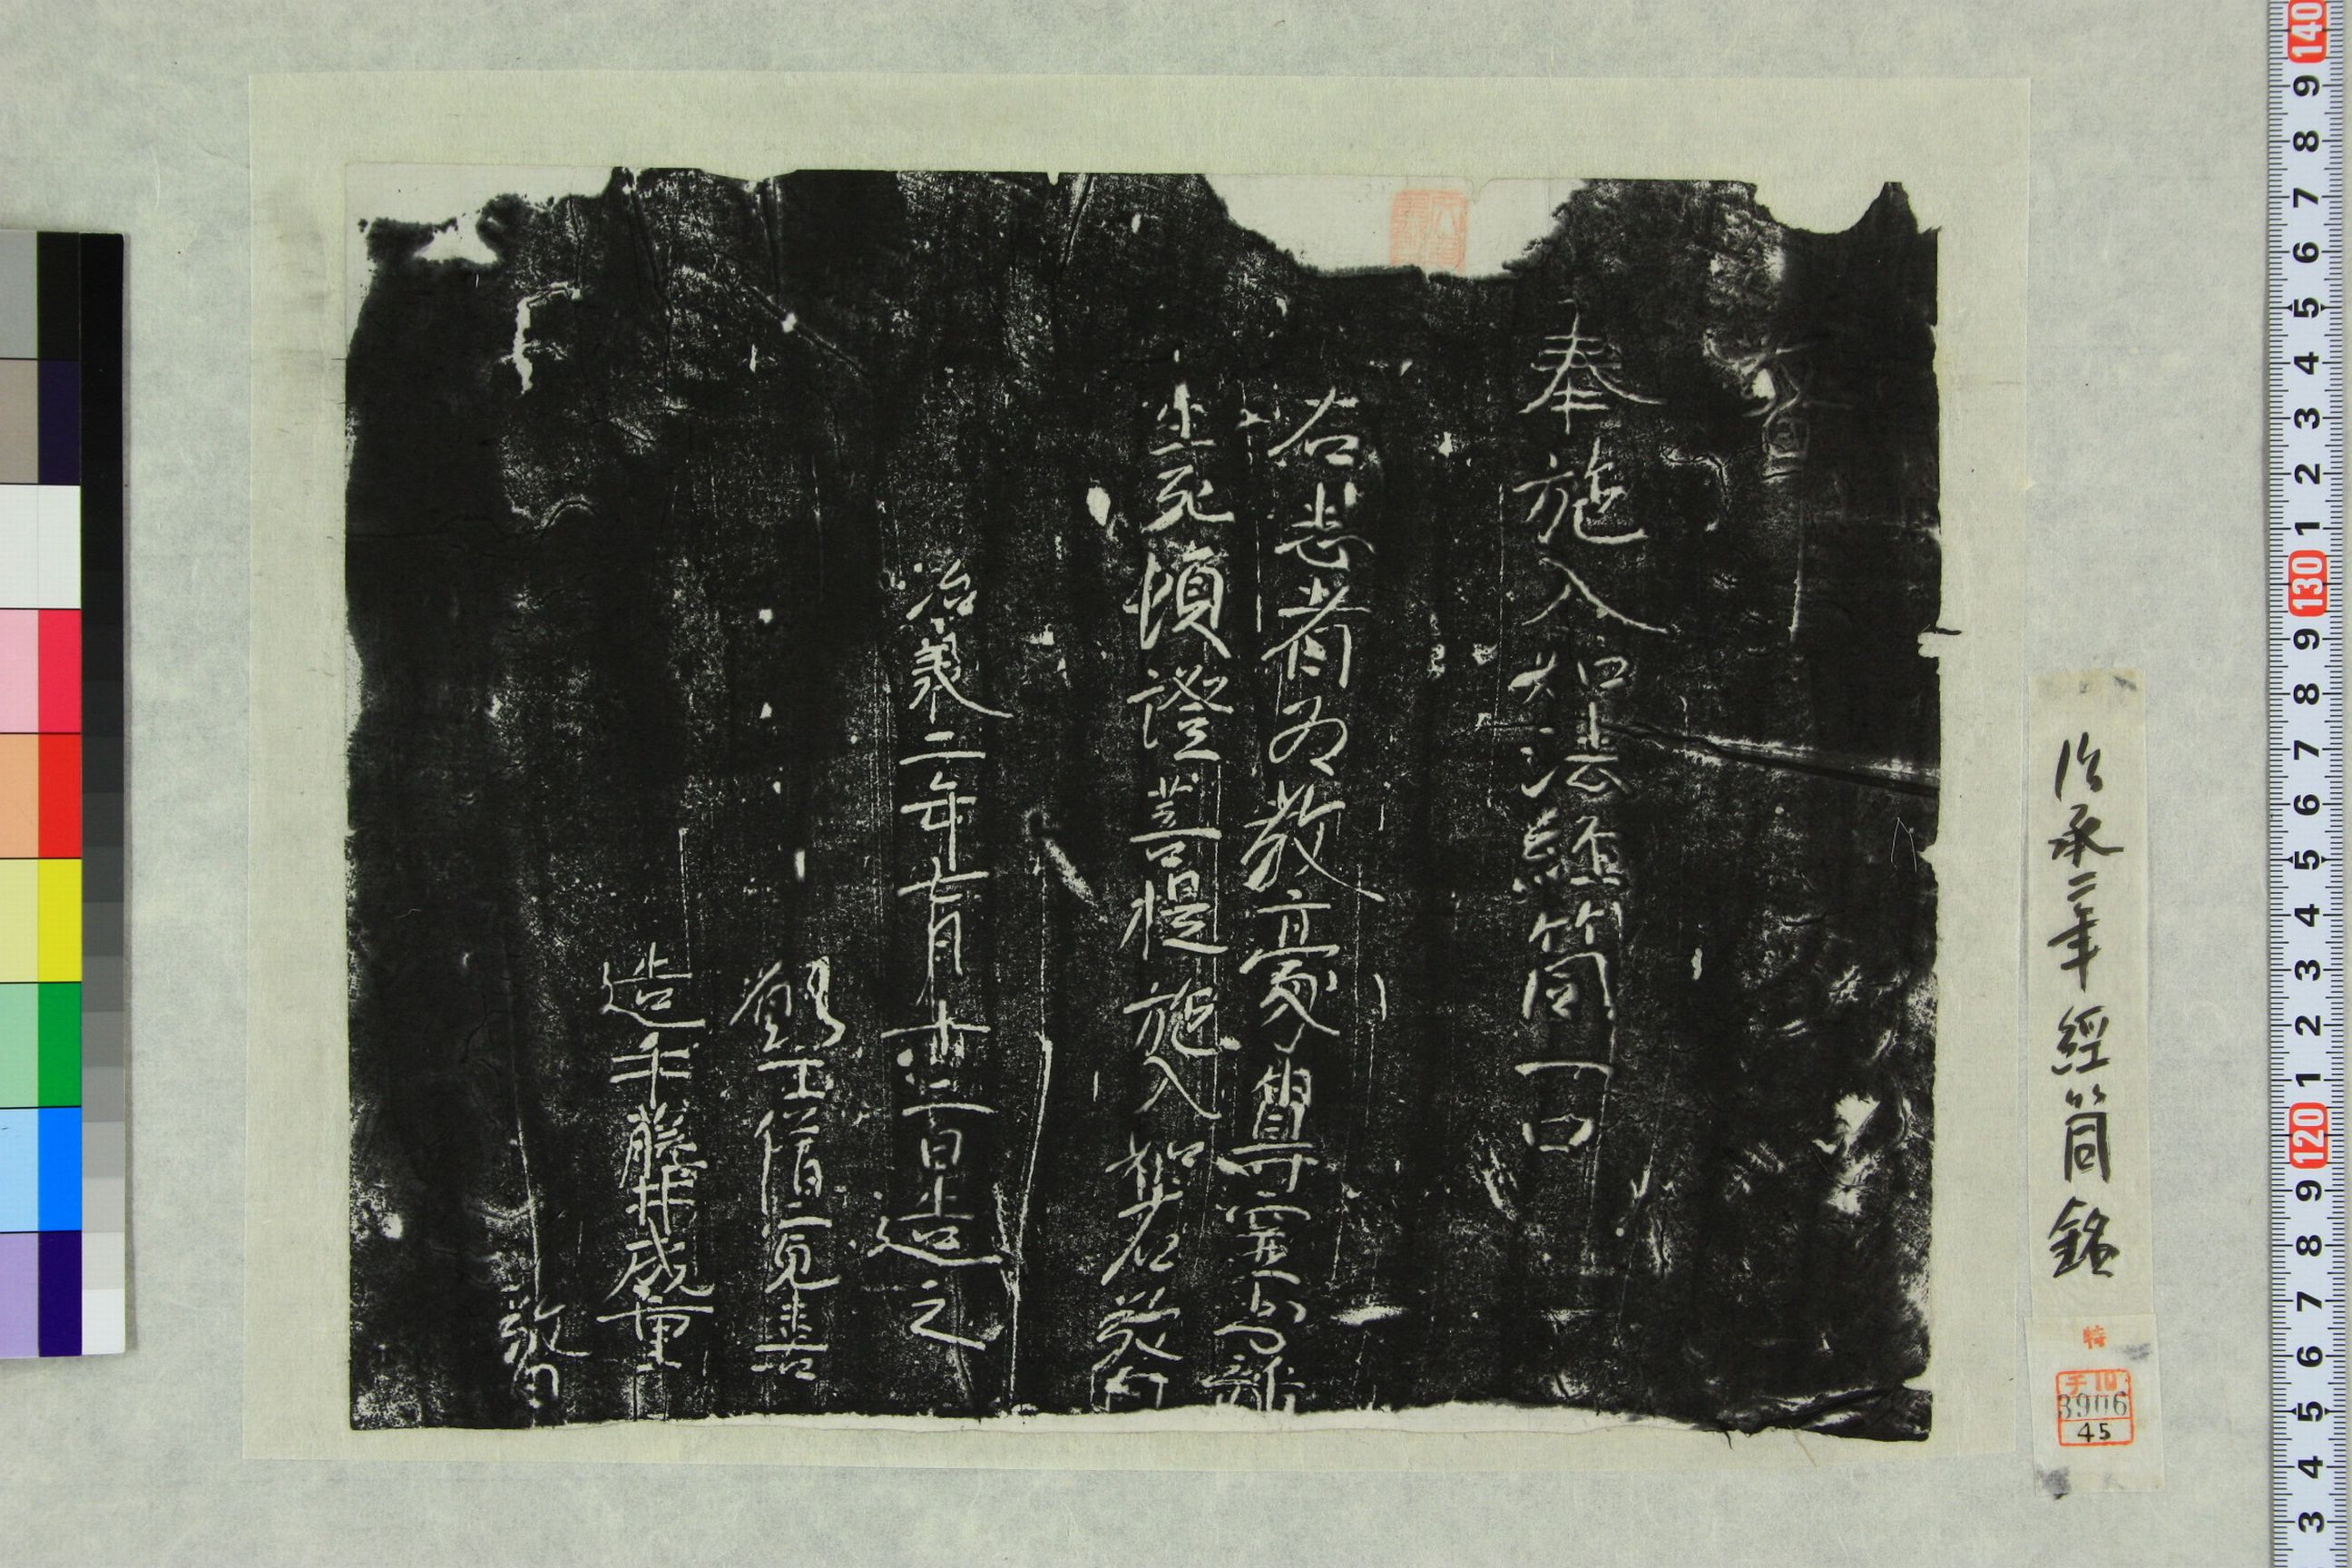 奉施入如法經筒一口
右志者為教豪尊霊出離
生死頓證菩提施入如右敬白
治承二年七月廿二日造之
願主僧冝善
造手藤井成重
敬白
治承二年經筒銘
特
3906
45